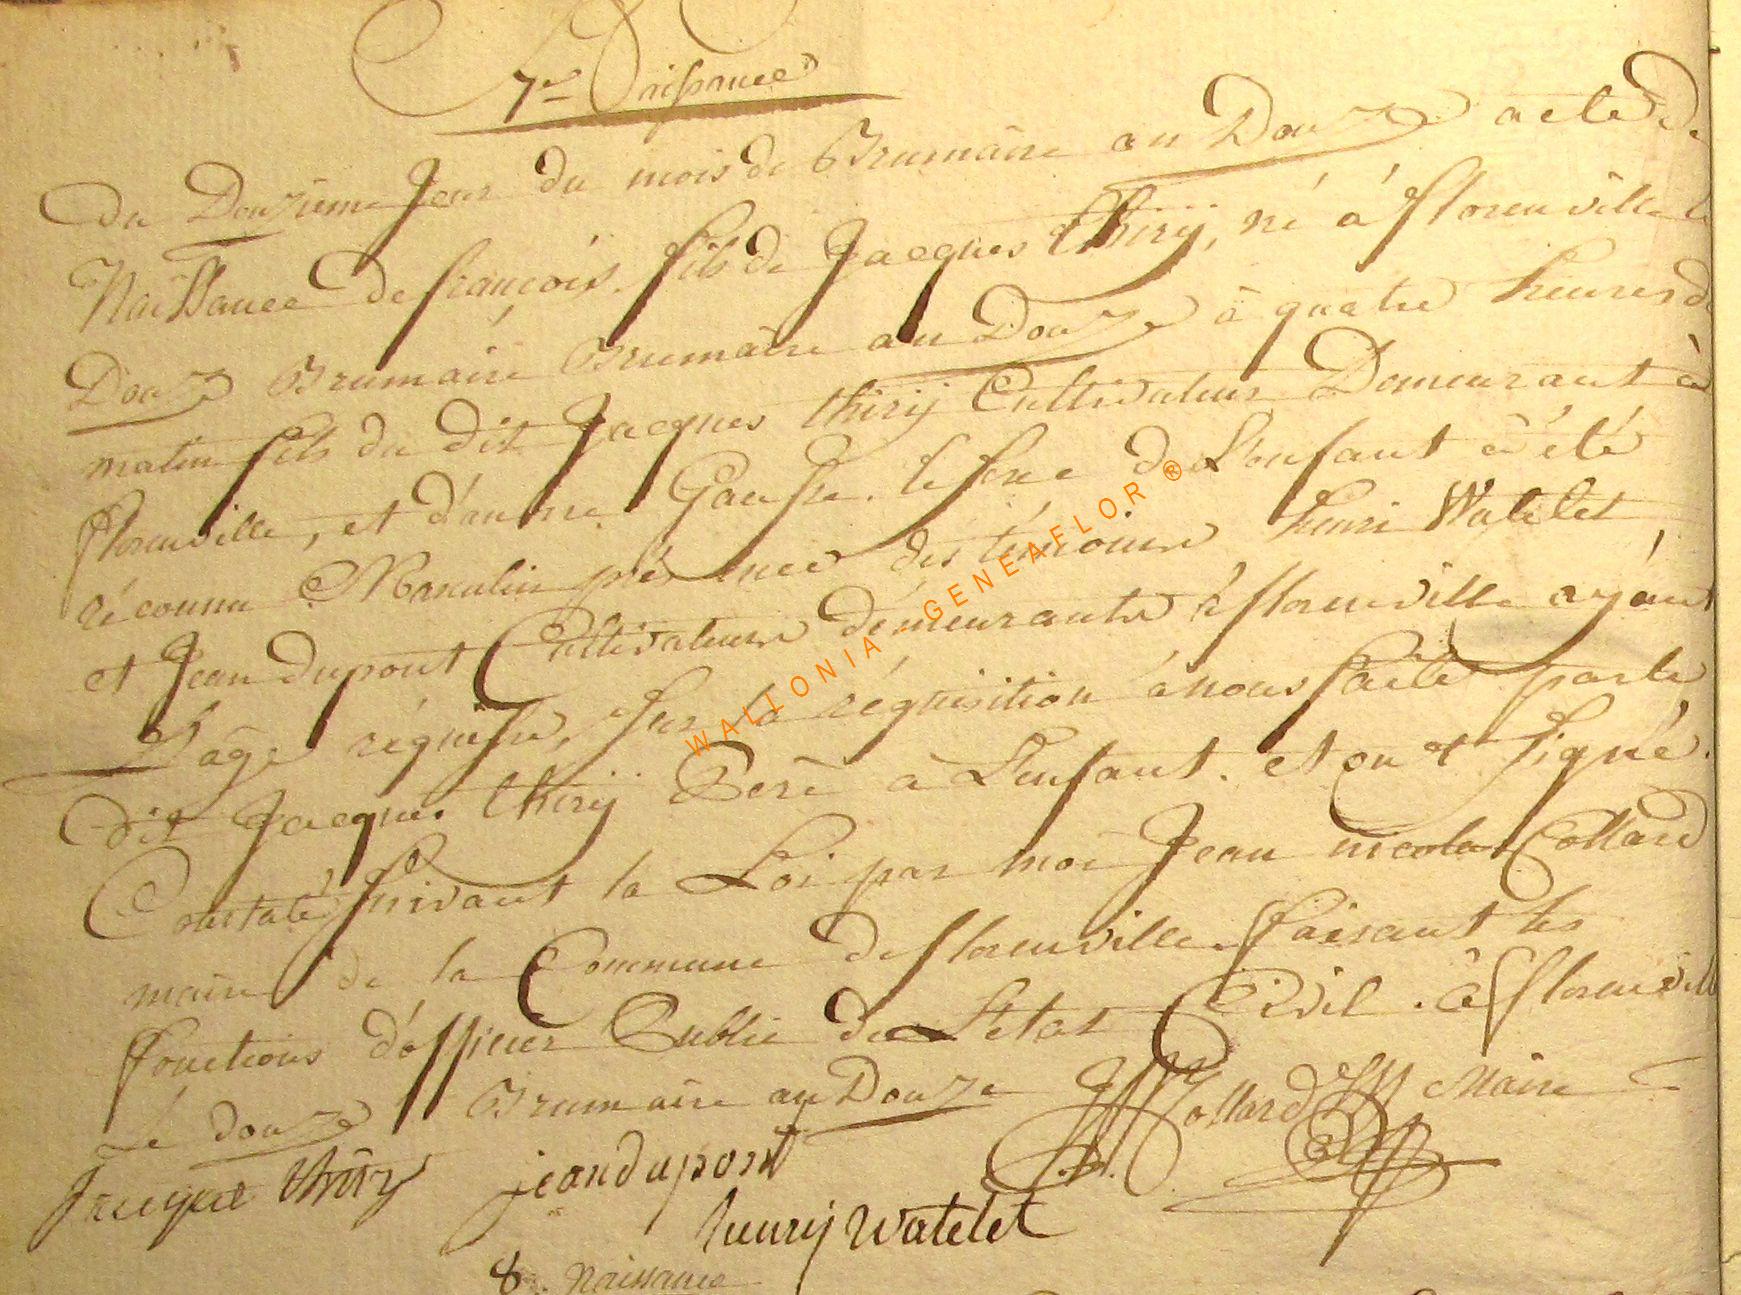 7.e Naissance
Du Douzieme Jour du mois de Brumaire an Douze acte de
Naissance de françois. fils de Jacques thirij, né á florenville le
Douze Brumaire Brumaire an Douze à quatre heures du
matin fils du dit Jacques thirij Cultivateur Demeurant à
florenville, et d'anne le sexe de L'enfant à été
réconnu Masculin présence des témoins henri Watelet
et Jean Dupont Cultivateurs démeurants à florenville ayant
L'âge réquise, sur la réquisition á nous faite par le
dit Jacques thirij Pere à L'enfant. et ont signé.
Constaté suivant la Loi par moi Jean nicolas Collard
maire de la Commune de florenville faisant les
fonctions d'officier Public de L'etat Civil. à florenville
Le douze Brumaire an Douze Collard Maire
Jacque thiry jean dupont
henrij watelet
8. Naissance
WALLONIA - GENEAFLOR ®